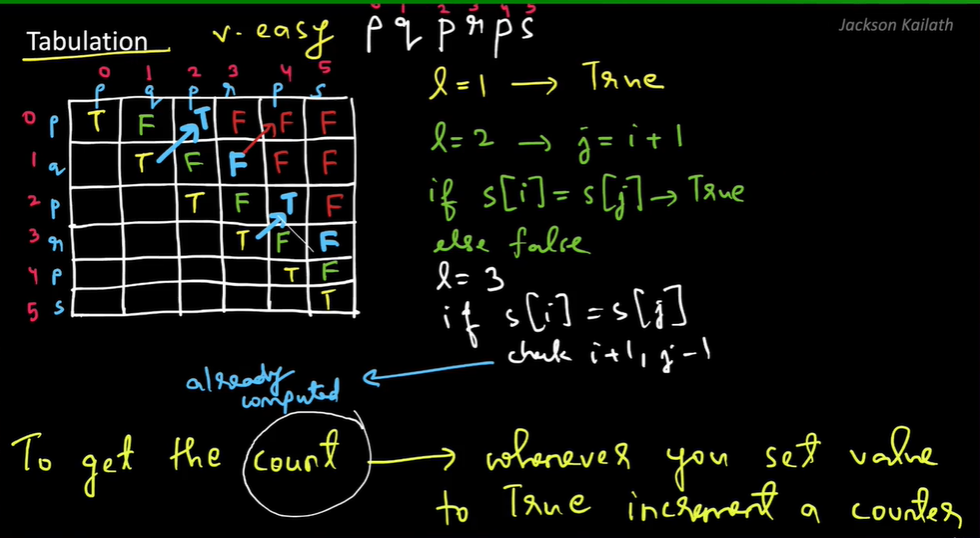 Jackson Kailath
Tabulation v. easy
0 1 2 3 4 5
p q p r p s
0 1 2 3 4 5
p q p r p s
0 p T F T F F F
1 q T F F F F
2 p T F T F
3 r T F F
4 p T F
5 s T
l=1 → True
l=2 → j=i+1
if s[i]=s[j] → True
else false
l=3
if s[i]=s[j]
check i+1, j-1
already
computed
To get the count → whenever you set value
to True increment a counter